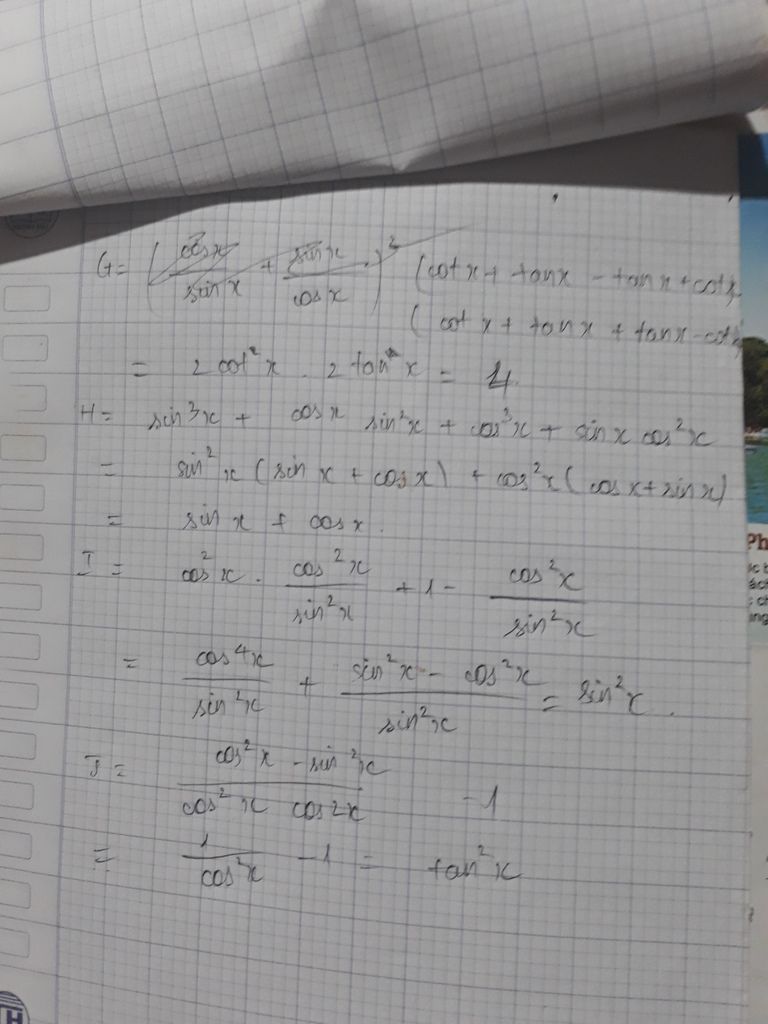 G = (cosx/sinx + sinx/cosx)² (cotx + tanx - tanx + cotx
( cotx + tanx + tanx - cotx
= 2cot²x . 2tan²x = 4.
H = sin³x + cosx sin²x + cos³x + sinx cos²x
= sin²x (sinx + cosx) + cos²x (cosx + sinx)
= sinx + cosx.
I = cos²x . cos²x/sin²x + 1 - cos²x/sin²x
= cos⁴x/sin²x + (sin²x - cos²x)/sin²x = sin²x.
J = (cos²x - sin²x)/(cos²x cos2x) - 1
= 1/cos²x - 1 = tan²x
Ph
H